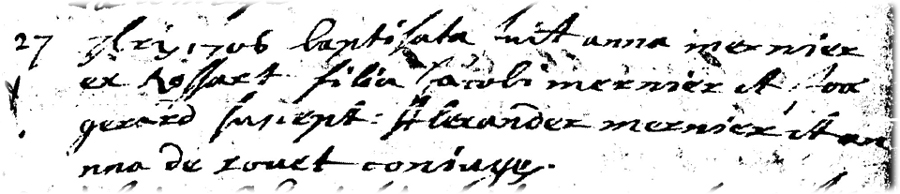 27 1706 baptisata fuit anna mernier
ex Rossart filia Jacobi mernier et
gerard suscept: Alexander mernier et an
nna de rouet coniuges.